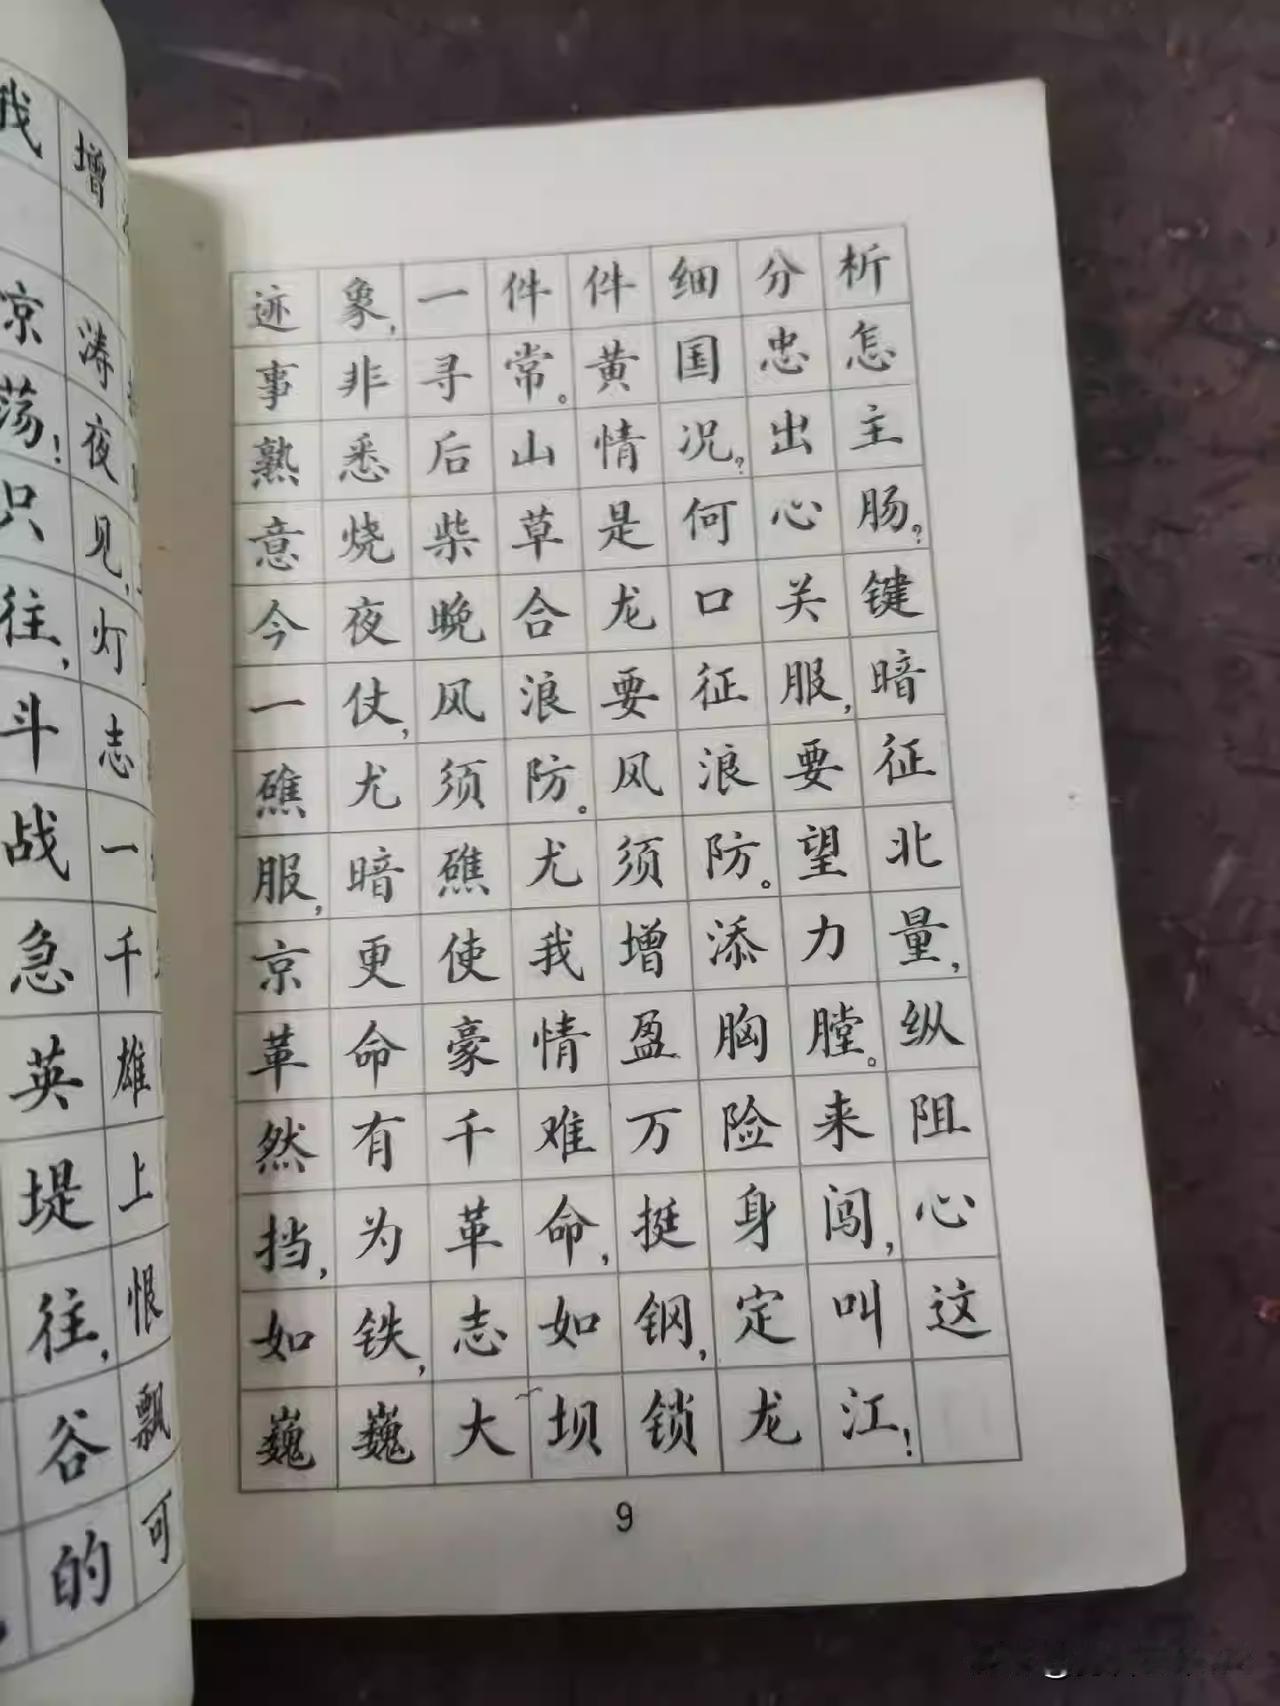 我增
京涛
荡!夜
只见,
往,灯
斗志
战一
急千
英雄
堤上
往,恨
谷飘
的可
迹象,一件件细分析
事非寻常。黄国忠怎
熟悉后山情况?出主
意烧柴草是何心肠?
今夜晚合龙口关键
一仗,风浪要征服,暗
礁尤须防。风浪要征
服,暗礁尤须防。望北
京更使我增添力量,
革命豪情盈胸膛。纵
然有千难万险来阻
挡,为革命,挺身闯,心
如铁,志如钢,定叫这
巍巍大坝锁龙江!
9